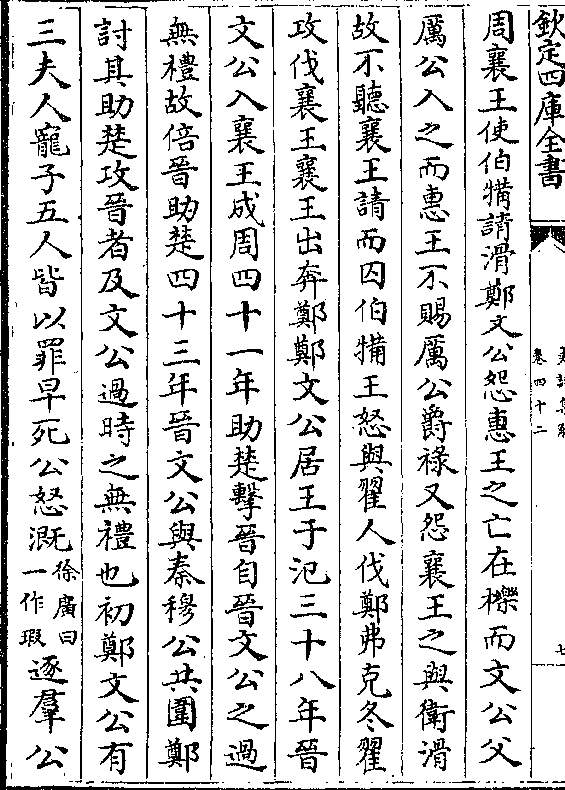 欽定四庫全書
卷四十二
七
周襄王使伯犕請滑鄭文公怨惠王之亡在櫟而文公父
厲公入之而惠王不賜厲公爵祿又怨襄王之與衛滑
故不聽襄王請而囚伯犕王怒與翟人伐鄭弗克冬翟
攻伐襄王襄王出奔鄭鄭文公居王于氾三十八年晉
文公入襄王成周四十一年助楚擊晉自晉文公之過
無禮故倍晉助楚四十三年晉文公與秦穆公共圍鄭
討其助楚攻晉者及文公過時之無禮也初鄭文公有
三夫人寵子五人皆以罪早死公怒溉徐廣曰一作瑕逐羣公